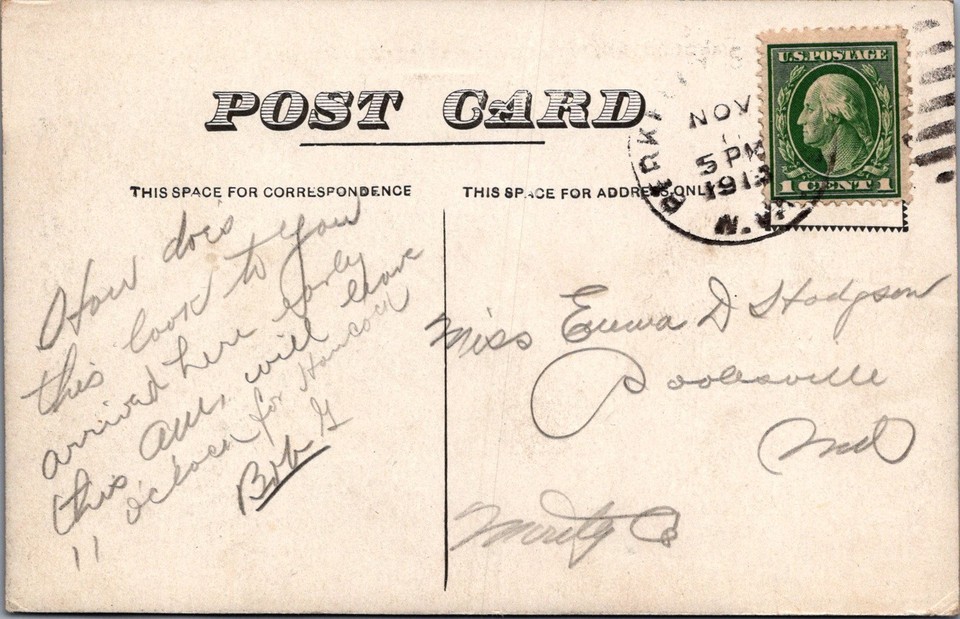 POST CARD
THIS SPACE FOR CORRESPONDENCE
THIS SPACE FOR ADDRESS ONLY
NOV
5 PM
1913
W.VA.
U.S. POSTAGE
1 CENT 1
How does
this look to you
arrived here early
this am, will leave
11 o'clock for Hancock
Bob G
Miss Emma D Hodgson
Poolesville
Md
Co